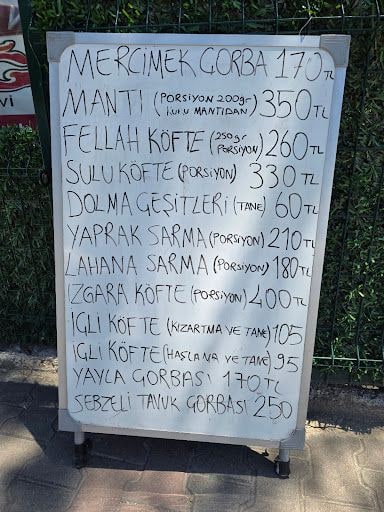 Vİ
MERCİMEK GORBA 170TL
MANTI (PORSİYON 200gr KURU MANTIDAN) 350TL
FELLAH KÖFTE (250gr PORSİYON) 260TL
SULU KÖFTE (PORSİYON) 330TL
DOLMA GEŞİTLERİ (TANE) 60TL
YAPRAK SARMA (PORSİYON) 210TL
LAHANA SARMA (PORSİYON) 180TL
IZGARA KÖFTE (PORSİYON) 400TL
IGLI KÖFTE (KIZARTMA VE TANE) 105
IGLI KÖFTE (HAŞLANA VE TANE) 95
YAYLA GORBASI 170TL
SEBZELİ TAVUK GORBASI 250